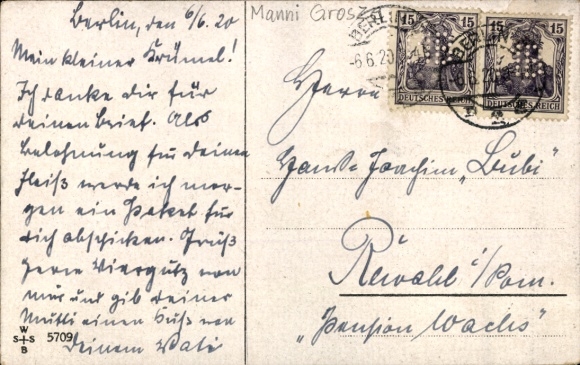 Berlin, den 6/6. 20
Mein kleiner Krümel!
Ich danke dir für
deinen Brief. Als
Belohnung für deinen
Fleiß werde ich mor-
gen ein Paket für
dich abschicken. Grüß
Herrn Viergutz von
mir und gib deiner
Mutti einen Kuß von
deinem Vati
W
S S
B
5709
Manni Grosz
BERLIN
-6.6.20
15 15
15 15
DEUTSCHES REICH
DEUTSCHES REICH
BERLIN
Herrn
Hans-Joachim „Bubi"
Rewahl i/Pom.
„Pension Wachs"